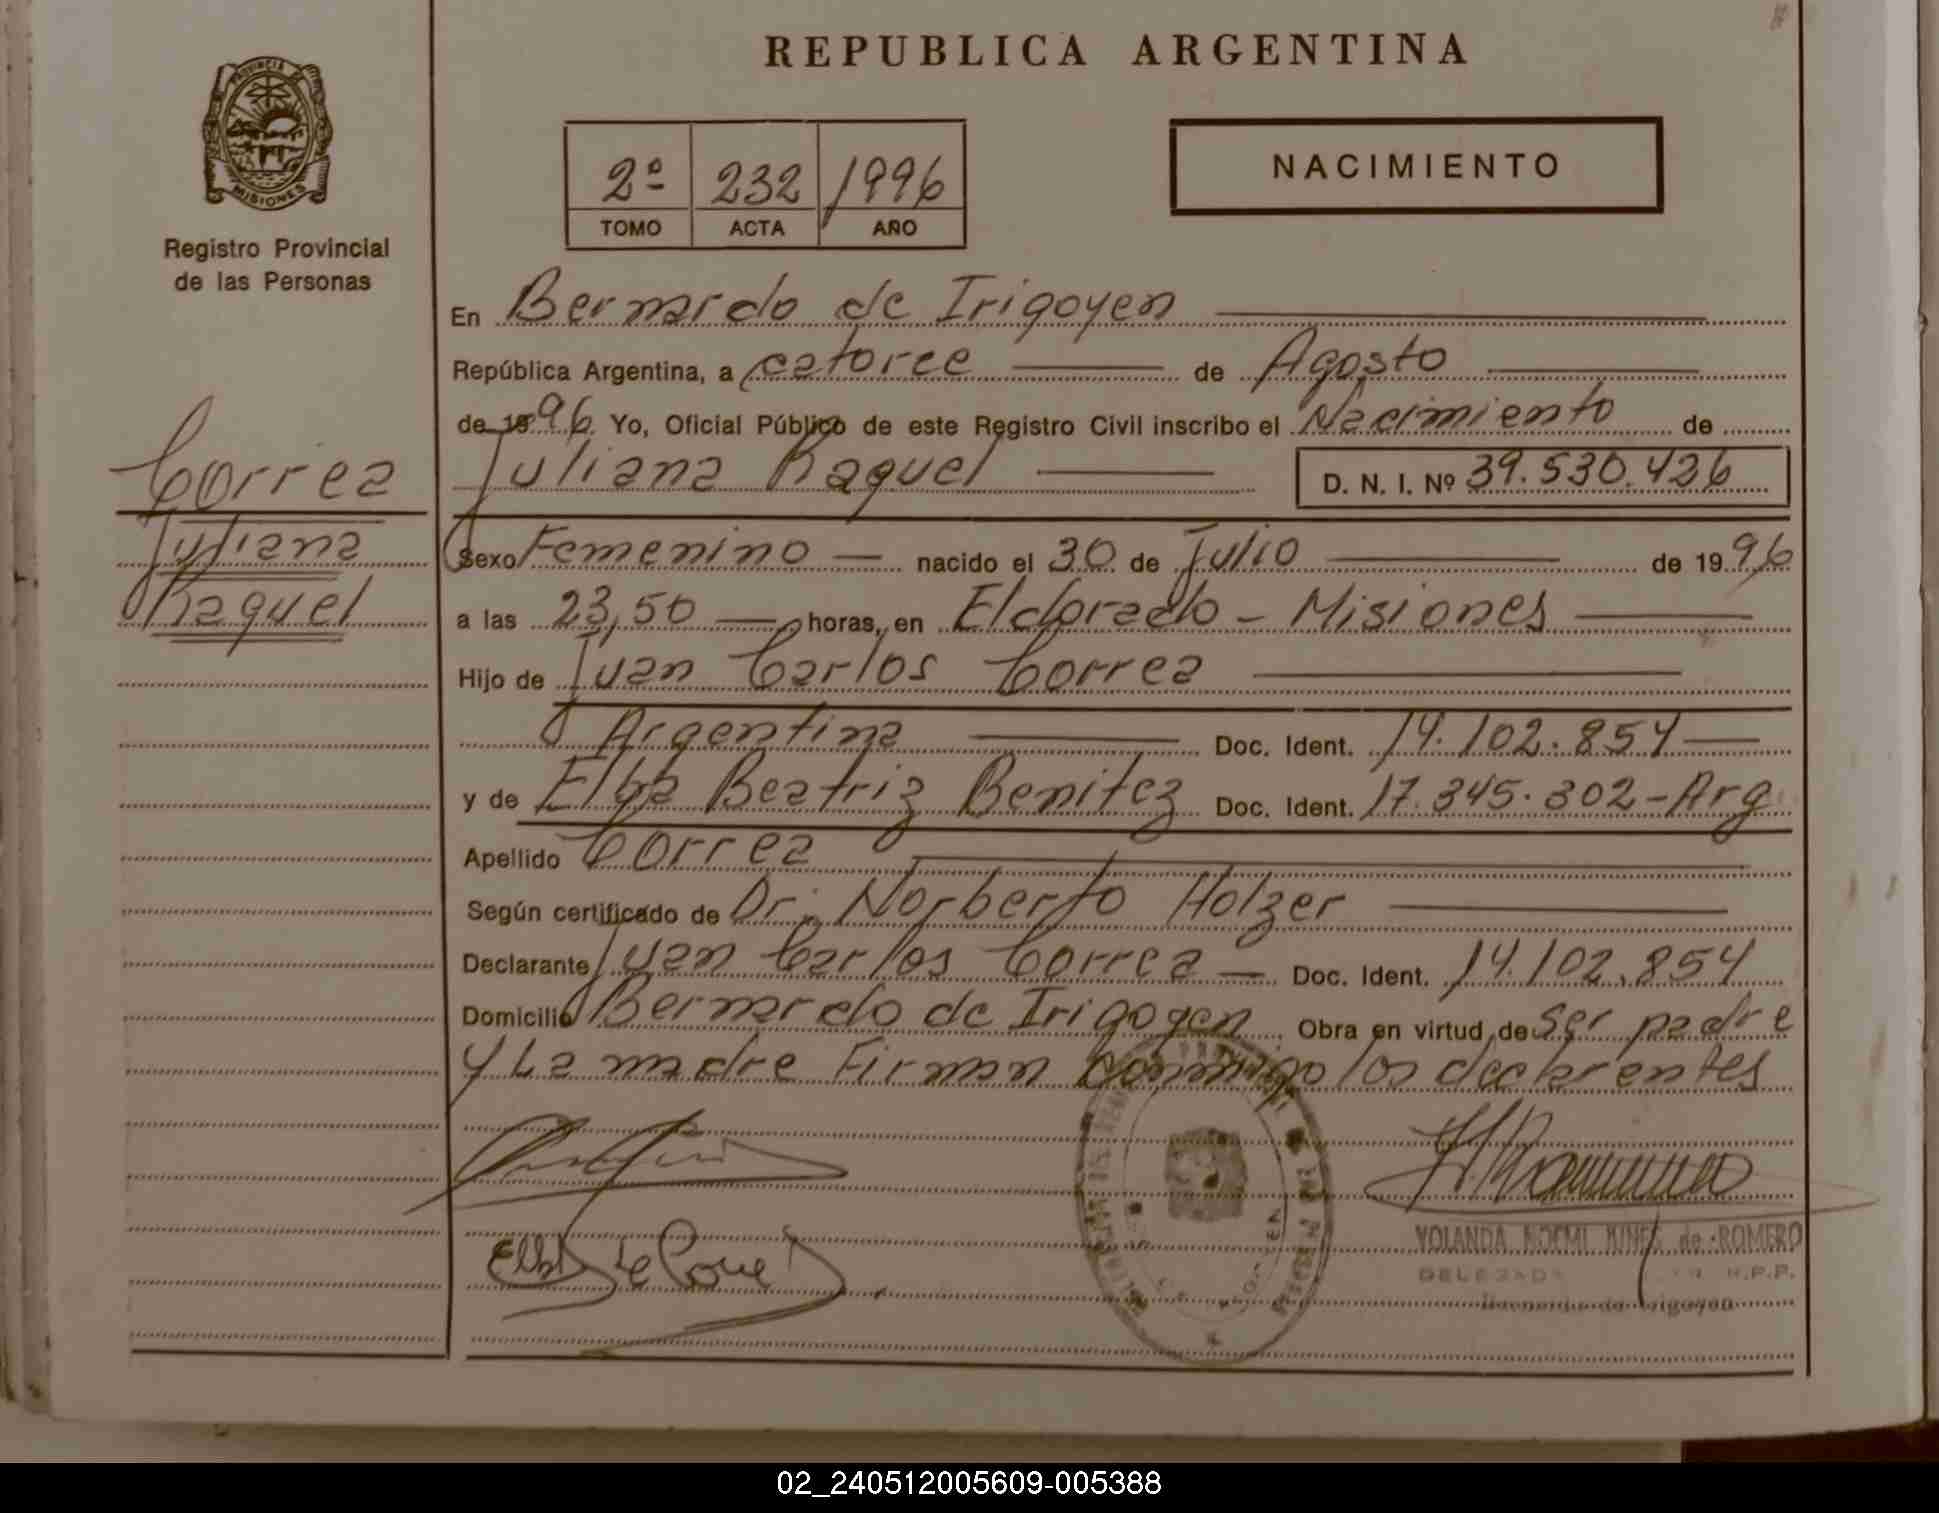 REPUBLICA ARGENTINA
PROVINCIA DE
MISIONES
Registro Provincial
de las Personas
2º 232 1996
TOMO ACTA AÑO
NACIMIENTO
En Bernardo de Irigoyen
República Argentina, a catorce de Agosto
de 1996 Yo, Oficial Público de este Registro Civil inscribo el Nacimiento de
Juliana Raquel D. N. I. Nº 39.530.426
Correa
Juliana
Raquel
Sexo Femenino nacido el 30 de Julio de 1996
a las 23,50 horas, en Eldorado - Misiones
Hijo de Juan Carlos Correa
Argentina Doc. Ident. 14.102.854
y de Elba Beatriz Benitez Doc. Ident. 17.345.302-Arg
Apellido Correa
Según certificado de Dr. Norberto Holzer
Declarante Juan Carlos Correa Doc. Ident. 14.102.854
Domicilio Bernardo de Irigoyen Obra en virtud de ser padre
y La madre Firman conmigo los declarentes
YOLANDA NOEMI de ROMERO
DELEGADA R.P.P.
Bernardo de Irigoyen
02_240512005609-005388